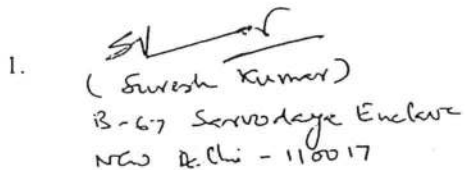 1.
( Suresh Kumar )
B-67 Sarvodaya Enclave
New Delhi - 110017